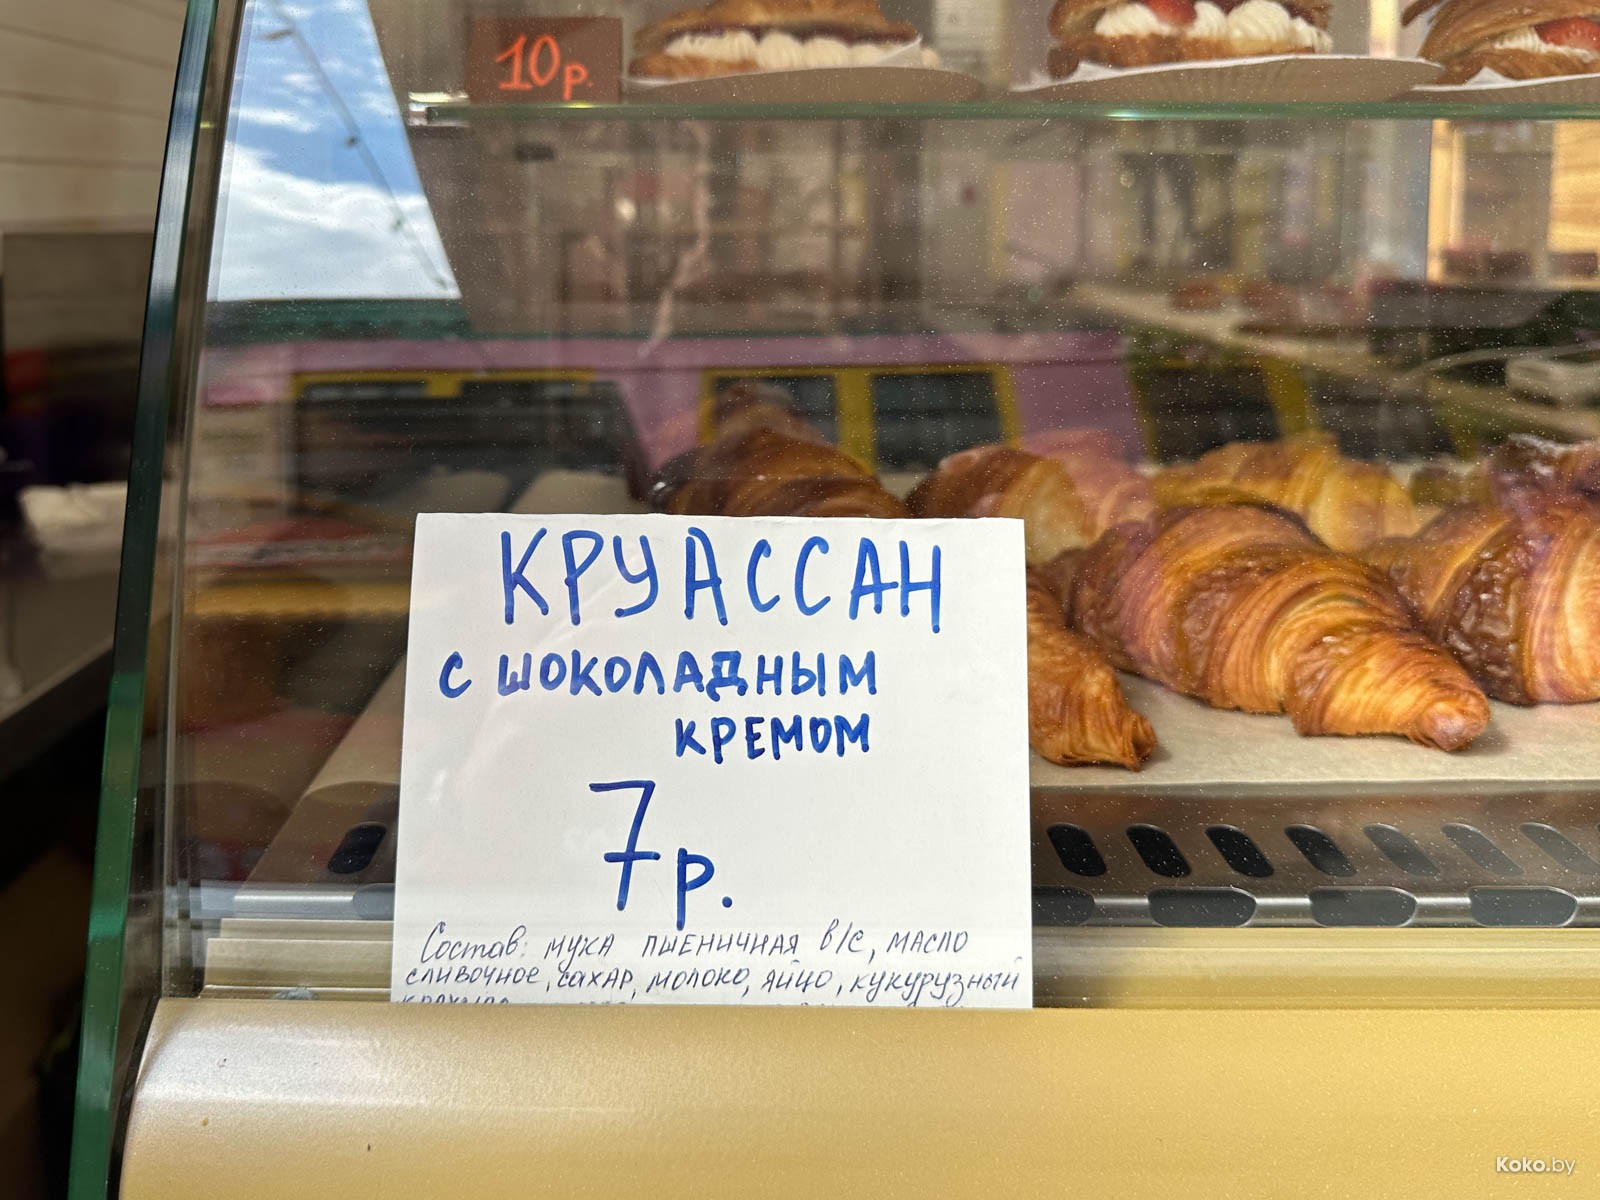 10р.
КРУАССАН
с шоколадным
кремом
7р.
Состав: мука пшеничная в/с, масло
сливочное, сахар, молоко, яйцо, кукурузный
Koko.by